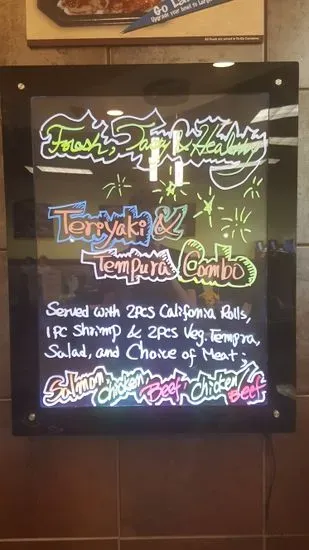 Go La
Upgrade your bowl to Large
Fresh, Tasty & Healthy
Teriyaki &
Tempura Combo
Served with 2PCS California Rolls,
1PC Shrimp & 2PCS Veg. Tempra,
Salad, and Choice of Meat;
Salmon Chicken Beef Chicken Beef